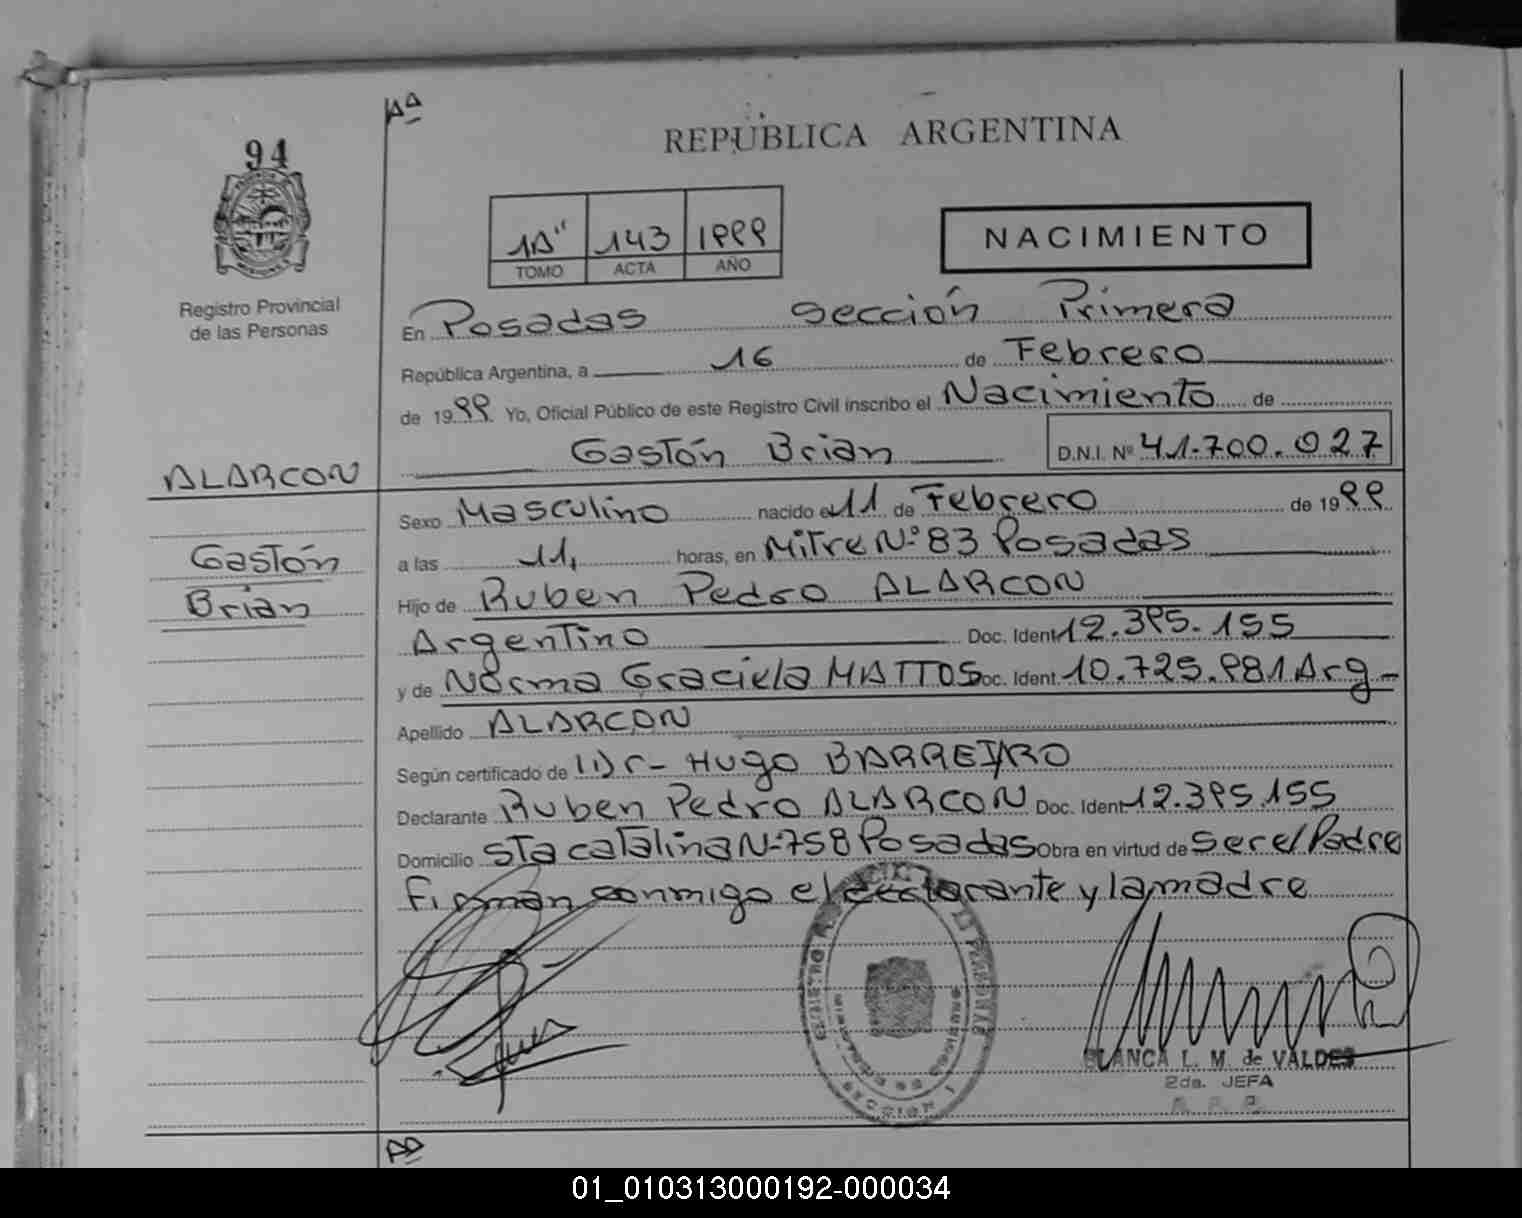 94
Registro Provincial
de las Personas
ALARCON
Gastón
Brian
REPUBLICA ARGENTINA
1A" 143 1999
TOMO ACTA AÑO
NACIMIENTO
En Posadas Sección Primera
República Argentina, a 16 de Febrero
de 1999 Yo, Oficial Público de este Registro Civil inscribo el Nacimiento de
Gastón Brian D.N.I. Nº 41.700.027
Sexo Masculino nacido el 11 de Febrero de 1999
a las 11, horas, en Mitre Nº 83 Posadas
Hijo de Ruben Pedro ALARCON
Argentino Doc. Ident. 12.395.155
y de Norma Graciela MATTOS Doc. Ident. 10.725.981 Arg-
Apellido ALARCON
Según certificado de Dr- Hugo
Declarante Ruben Pedro ALARCON Doc. Ident. 12.395.155
Domicilio Sta Catalina N-758 Posadas Obra en virtud de Ser el Padre
Firman conmigo el declarante y la madre
BLANCA L. M. de VALDES
2da. JEFA
SECCION 1
01_010313000192-000034